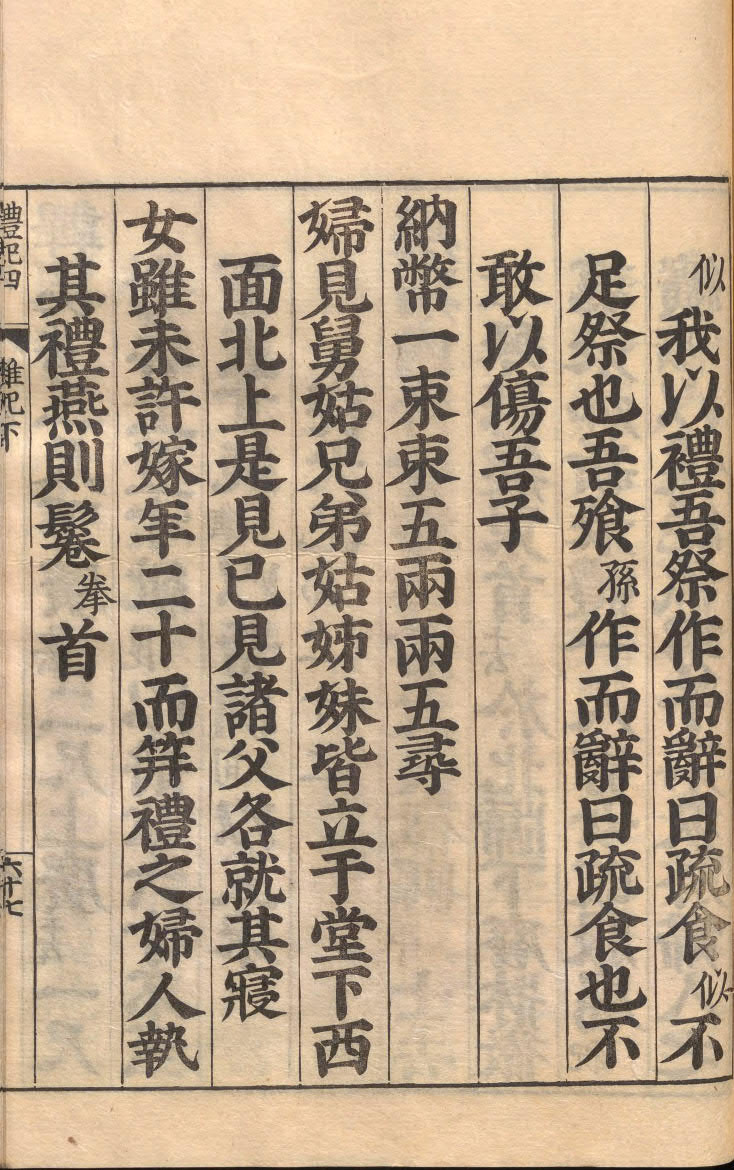 似我以禮吾祭作而辭曰疏食似不
足祭也吾飱孫作而辭曰疏食也不
敢以傷吾子
納幣一束束五兩兩五尋
婦見舅姑兄弟姑姊妹皆立于堂下西
面北上是見已見諸父各就其寢
女雖未許嫁年二十而筓禮之婦人執
其禮燕則鬈拳首
禮記四 雜記下 六十七